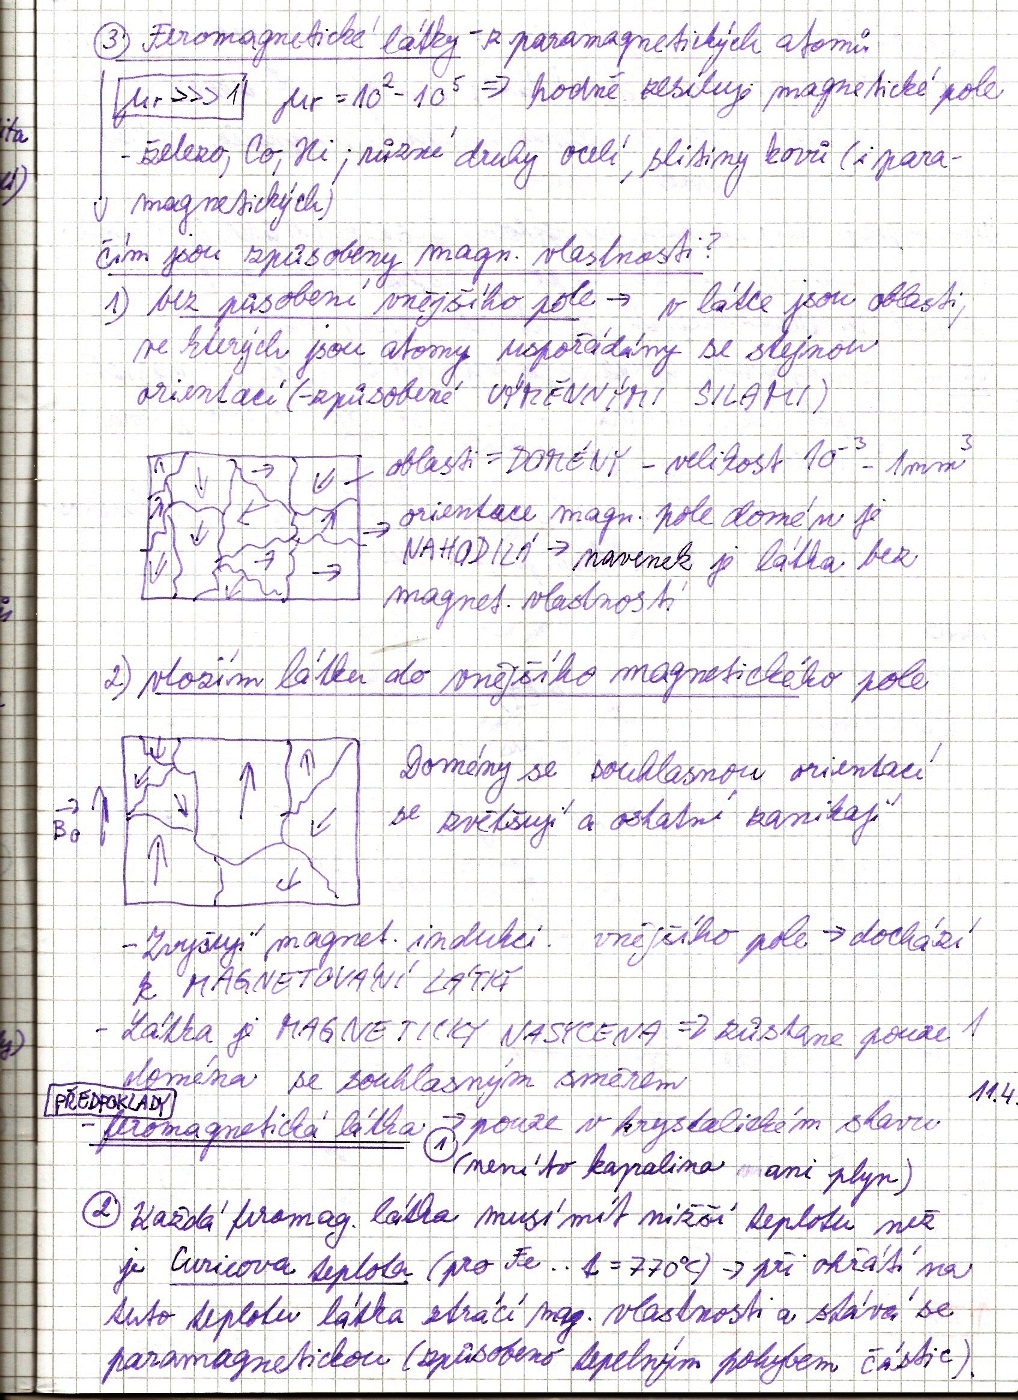 ③ Feromagnetické látky - z paramagnetických atomů
μr >>> 1 μr = 10² - 10⁵ ⇒ hodně zesilují magnetické pole
- železo, Co, Ni; různé druhy ocelí, slitiny kovů (i para-
magnetických)
čím jsou způsobeny magn. vlastnosti?
1) bez působení vnějšího pole → v látce jsou oblasti,
ve kterých jsou atomy uspořádány se stejnou
orientací (-způsobené VÝMĚNNÝMI SILAMI)
oblasti = DOMÉNY - velikost 10⁻³ - 1mm³
→ orientace magn. pole domén je
NAHODILÁ → navenek je látka bez
magnet. vlastností
2) vložím látku do vnějšího magnetického pole
Domény se souhlasnou orientací
B₀
se zvětšují a ostatní zanikají
- Zvyšují magnet. indukci. vnějšího pole → dochází
k MAGNETOVÁNÍ LÁTKY
- Látka je MAGNETICKY NASYCENA ⇒ zůstane pouze 1
doména se souhlasným směrem
11.4.
PŘEDPOKLADY
- feromagnetická látka → pouze v krystalickém stavu
① (není to kapalina ani plyn)
② Každá feromag. látka musí mít nižší teplotu než
je Curieova teplota (pro Fe .. t = 770°C) → při ohřátí na
tuto teplotu látka ztrácí mag. vlastnosti a stává se
paramagnetickou (způsobeno tepelným pohybem částic).